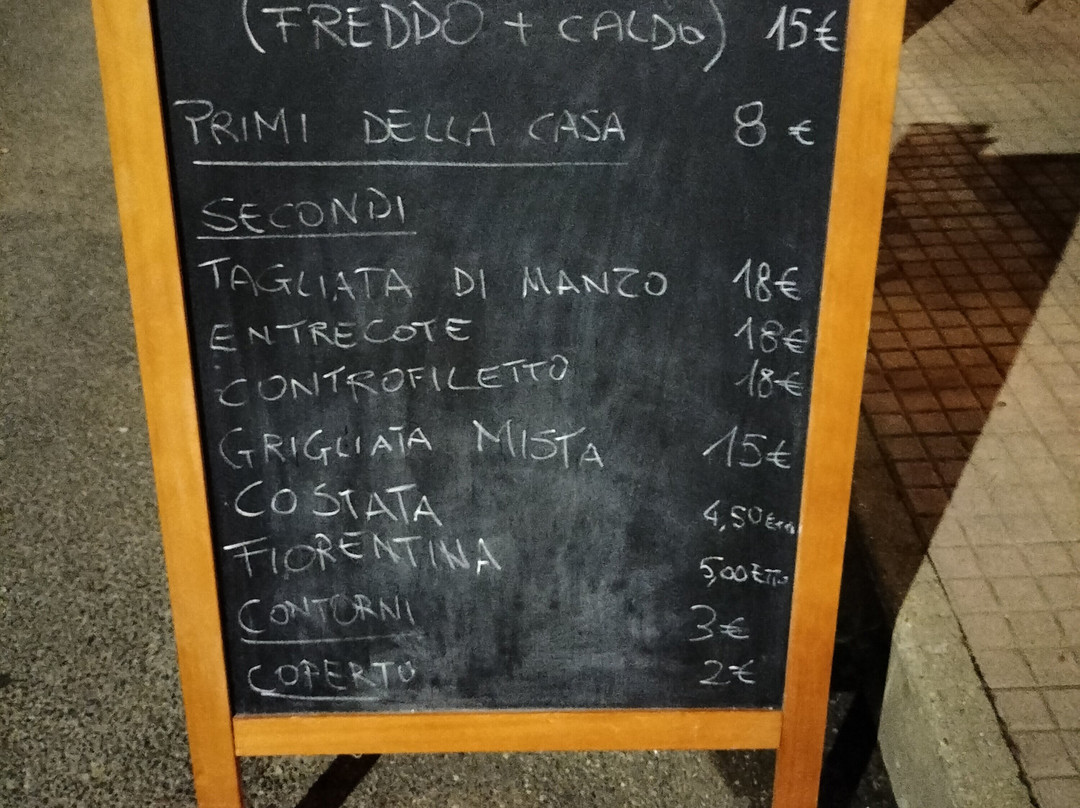 (FREDDO + CALDO) 15€
PRIMI DELLA CASA 8 €
SECONDI
TAGLIATA DI MANZO 18€
ENTRECOTE 18€
CONTROFILETTO 18€
GRIGLIATA MISTA 15€
COSTATA 4,50 ETTO
FIORENTINA 5,00 ETTO
CONTORNI 3€
COPERTO 2€